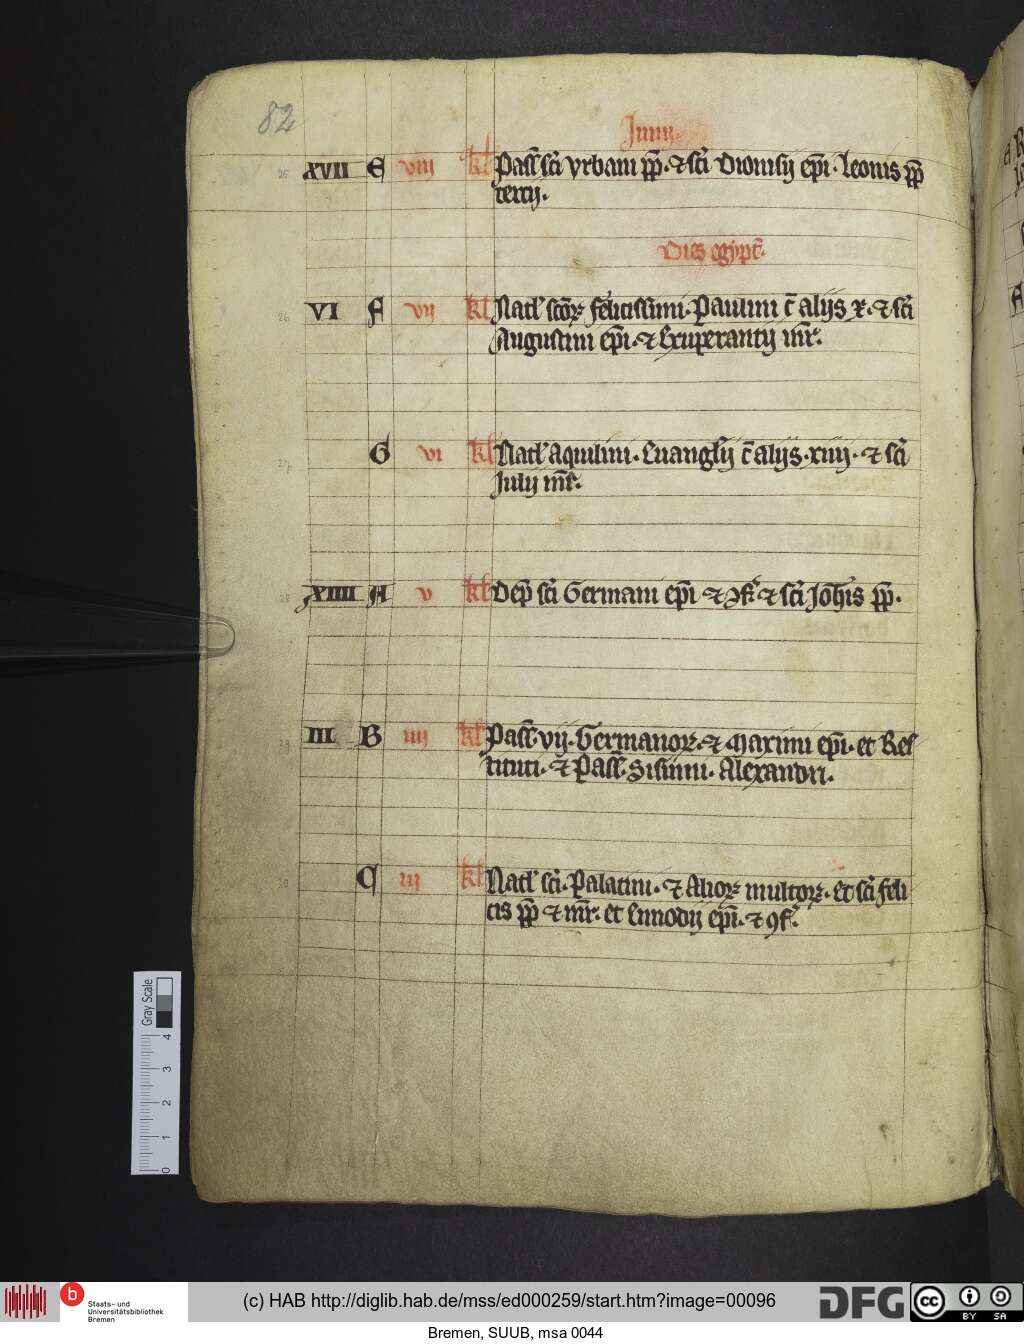 82
Junij
25 XVII E viij kl Pass̄ sc̄i vrbani pp̄. ⁊ sc̄i Dionisij ep̄i. Leonis pp̄
tercij.
Dies egypt̄.
26 VI F vij kl Natl' sc̄oꝝ felicissimi. Paulini c̄ alijs x. ⁊ sc̄i
Augustini ep̄i. ⁊ Exuperantij mr̄.
27 G vi kl Natl' Aquilini. Euanglij c̄ alijs. xiiij. ⁊ sc̄i
Julij mr̄.
28 XIIII A v kl Dep̄ sc̄i Germani ep̄i ⁊ ꝯf. ⁊ sc̄i Joh̄is pp̄.
29 III B iiij kl Pass̄. vij. Germanoꝝ. ⁊ Maximi ep̄i. et Res
tituti. ⁊ Pass̄. Sisinni. Alexandri.
30 C iij kl Natl' sc̄i. Palatini. ⁊ Alioꝝ multoꝝ. et sc̄i feli
cis pp̄ ⁊ mr̄. et Ennodij ep̄i. ⁊ ꝯf.
Gray Scale
0 1 2 3 4
b
Staats- und
Universitätsbibliothek
Bremen
(c) HAB http://diglib.hab.de/mss/ed000259/start.htm?image=00096
DFG
cc BY SA
Bremen, SUUB, msa 0044